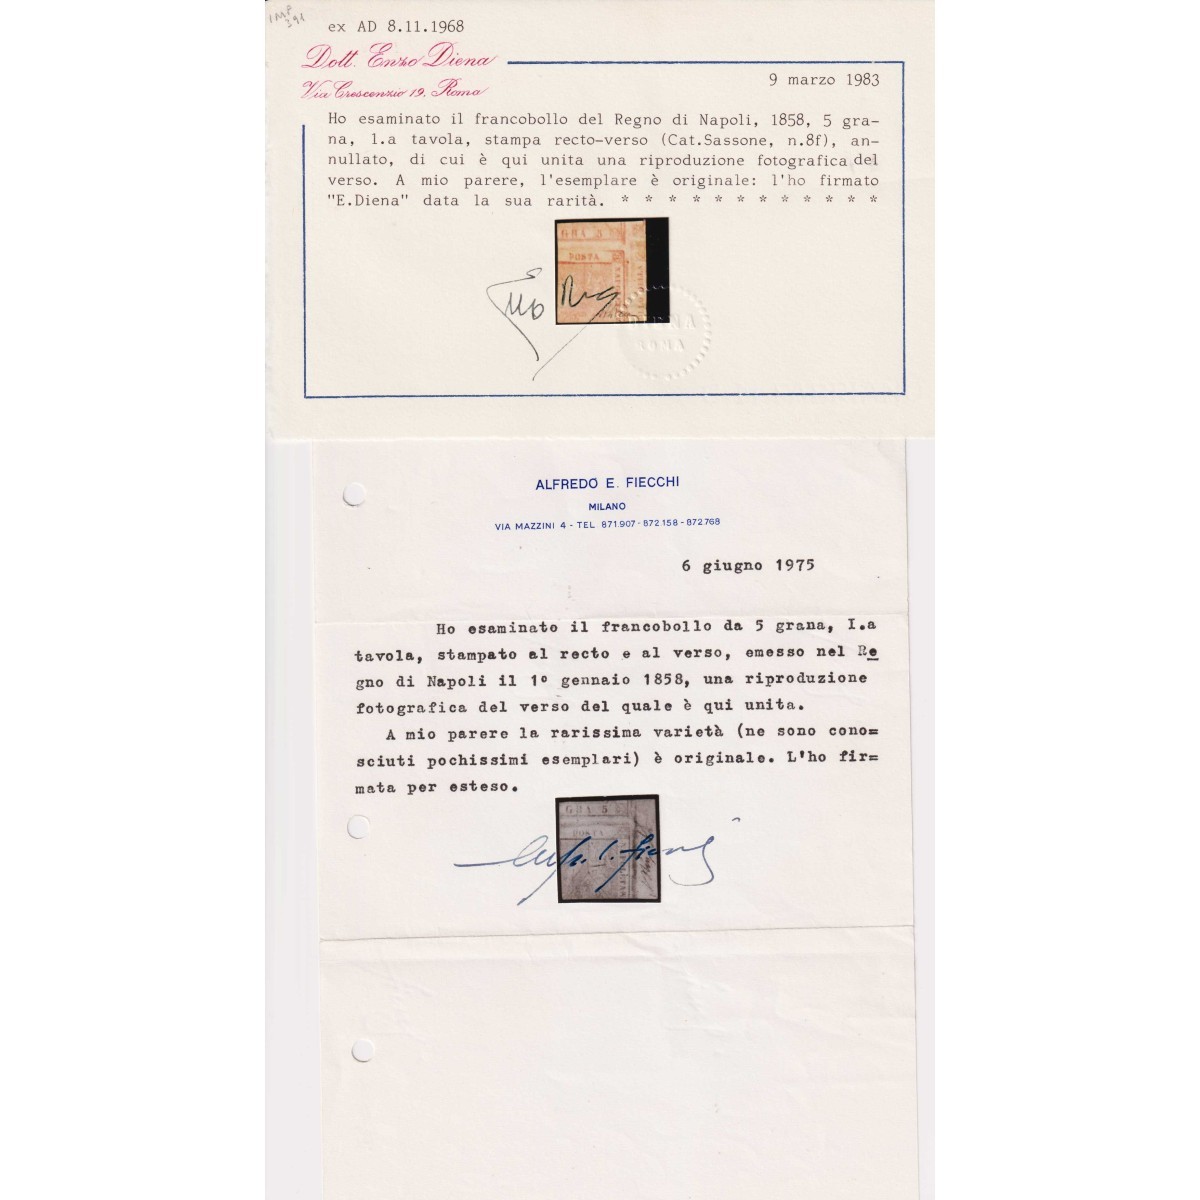 IMP
391
ex AD 8.11.1968
Dott. Enzo Diena
Via Crescenzio 19, Roma
9 marzo 1983
Ho esaminato il francobollo del Regno di Napoli, 1858, 5 gra-
na, I.a tavola, stampa recto-verso (Cat.Sassone, n.8f), an-
nullato, di cui è qui unita una riproduzione fotografica del
verso. A mio parere, l'esemplare è originale: l'ho firmato
"E.Diena" data la sua rarità. * * * * * * * * * * * *
GRA 5
POSTA
DIENA
ROMA
ALFREDO E. FIECCHI
MILANO
VIA MAZZINI 4 - TEL 871.907 - 872.158 - 872.768
6 giugno 1975
Ho esaminato il francobollo da 5 grana, I.a
tavola, stampato al recto e al verso, emesso nel Re
gno di Napoli il 1° gennaio 1858, una riproduzione
fotografica del verso del quale è qui unita.
A mio parere la rarissima varietà (ne sono cono=
sciuti pochissimi esemplari) è originale. L'ho fir=
mata per esteso.
GRA 5
POSTA